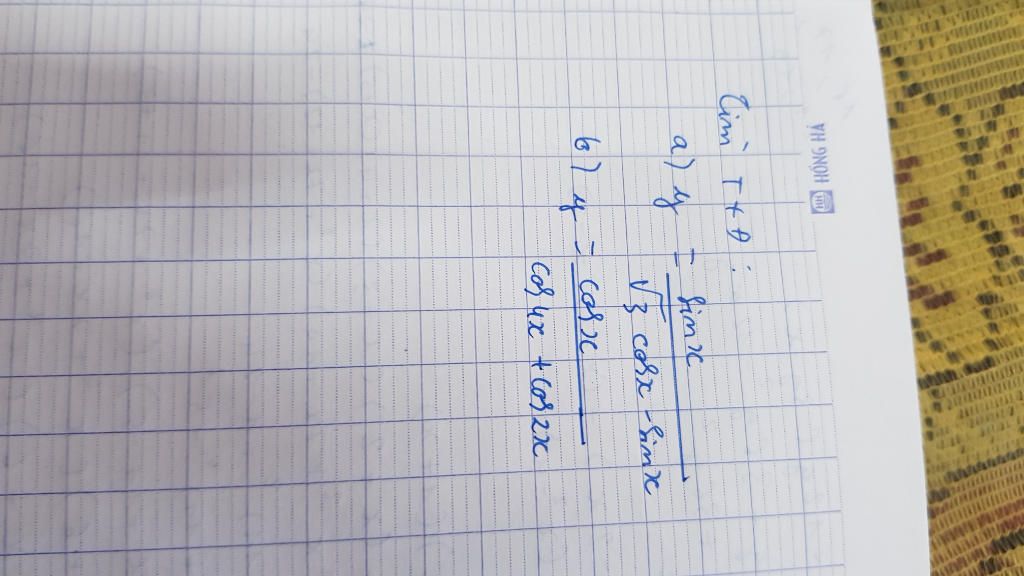 HH HỒNG HÀ
Tìm TXĐ :
a) y = sin x
√3 cos x - sin x
b) y = cos x
cos 4x + cos 2x